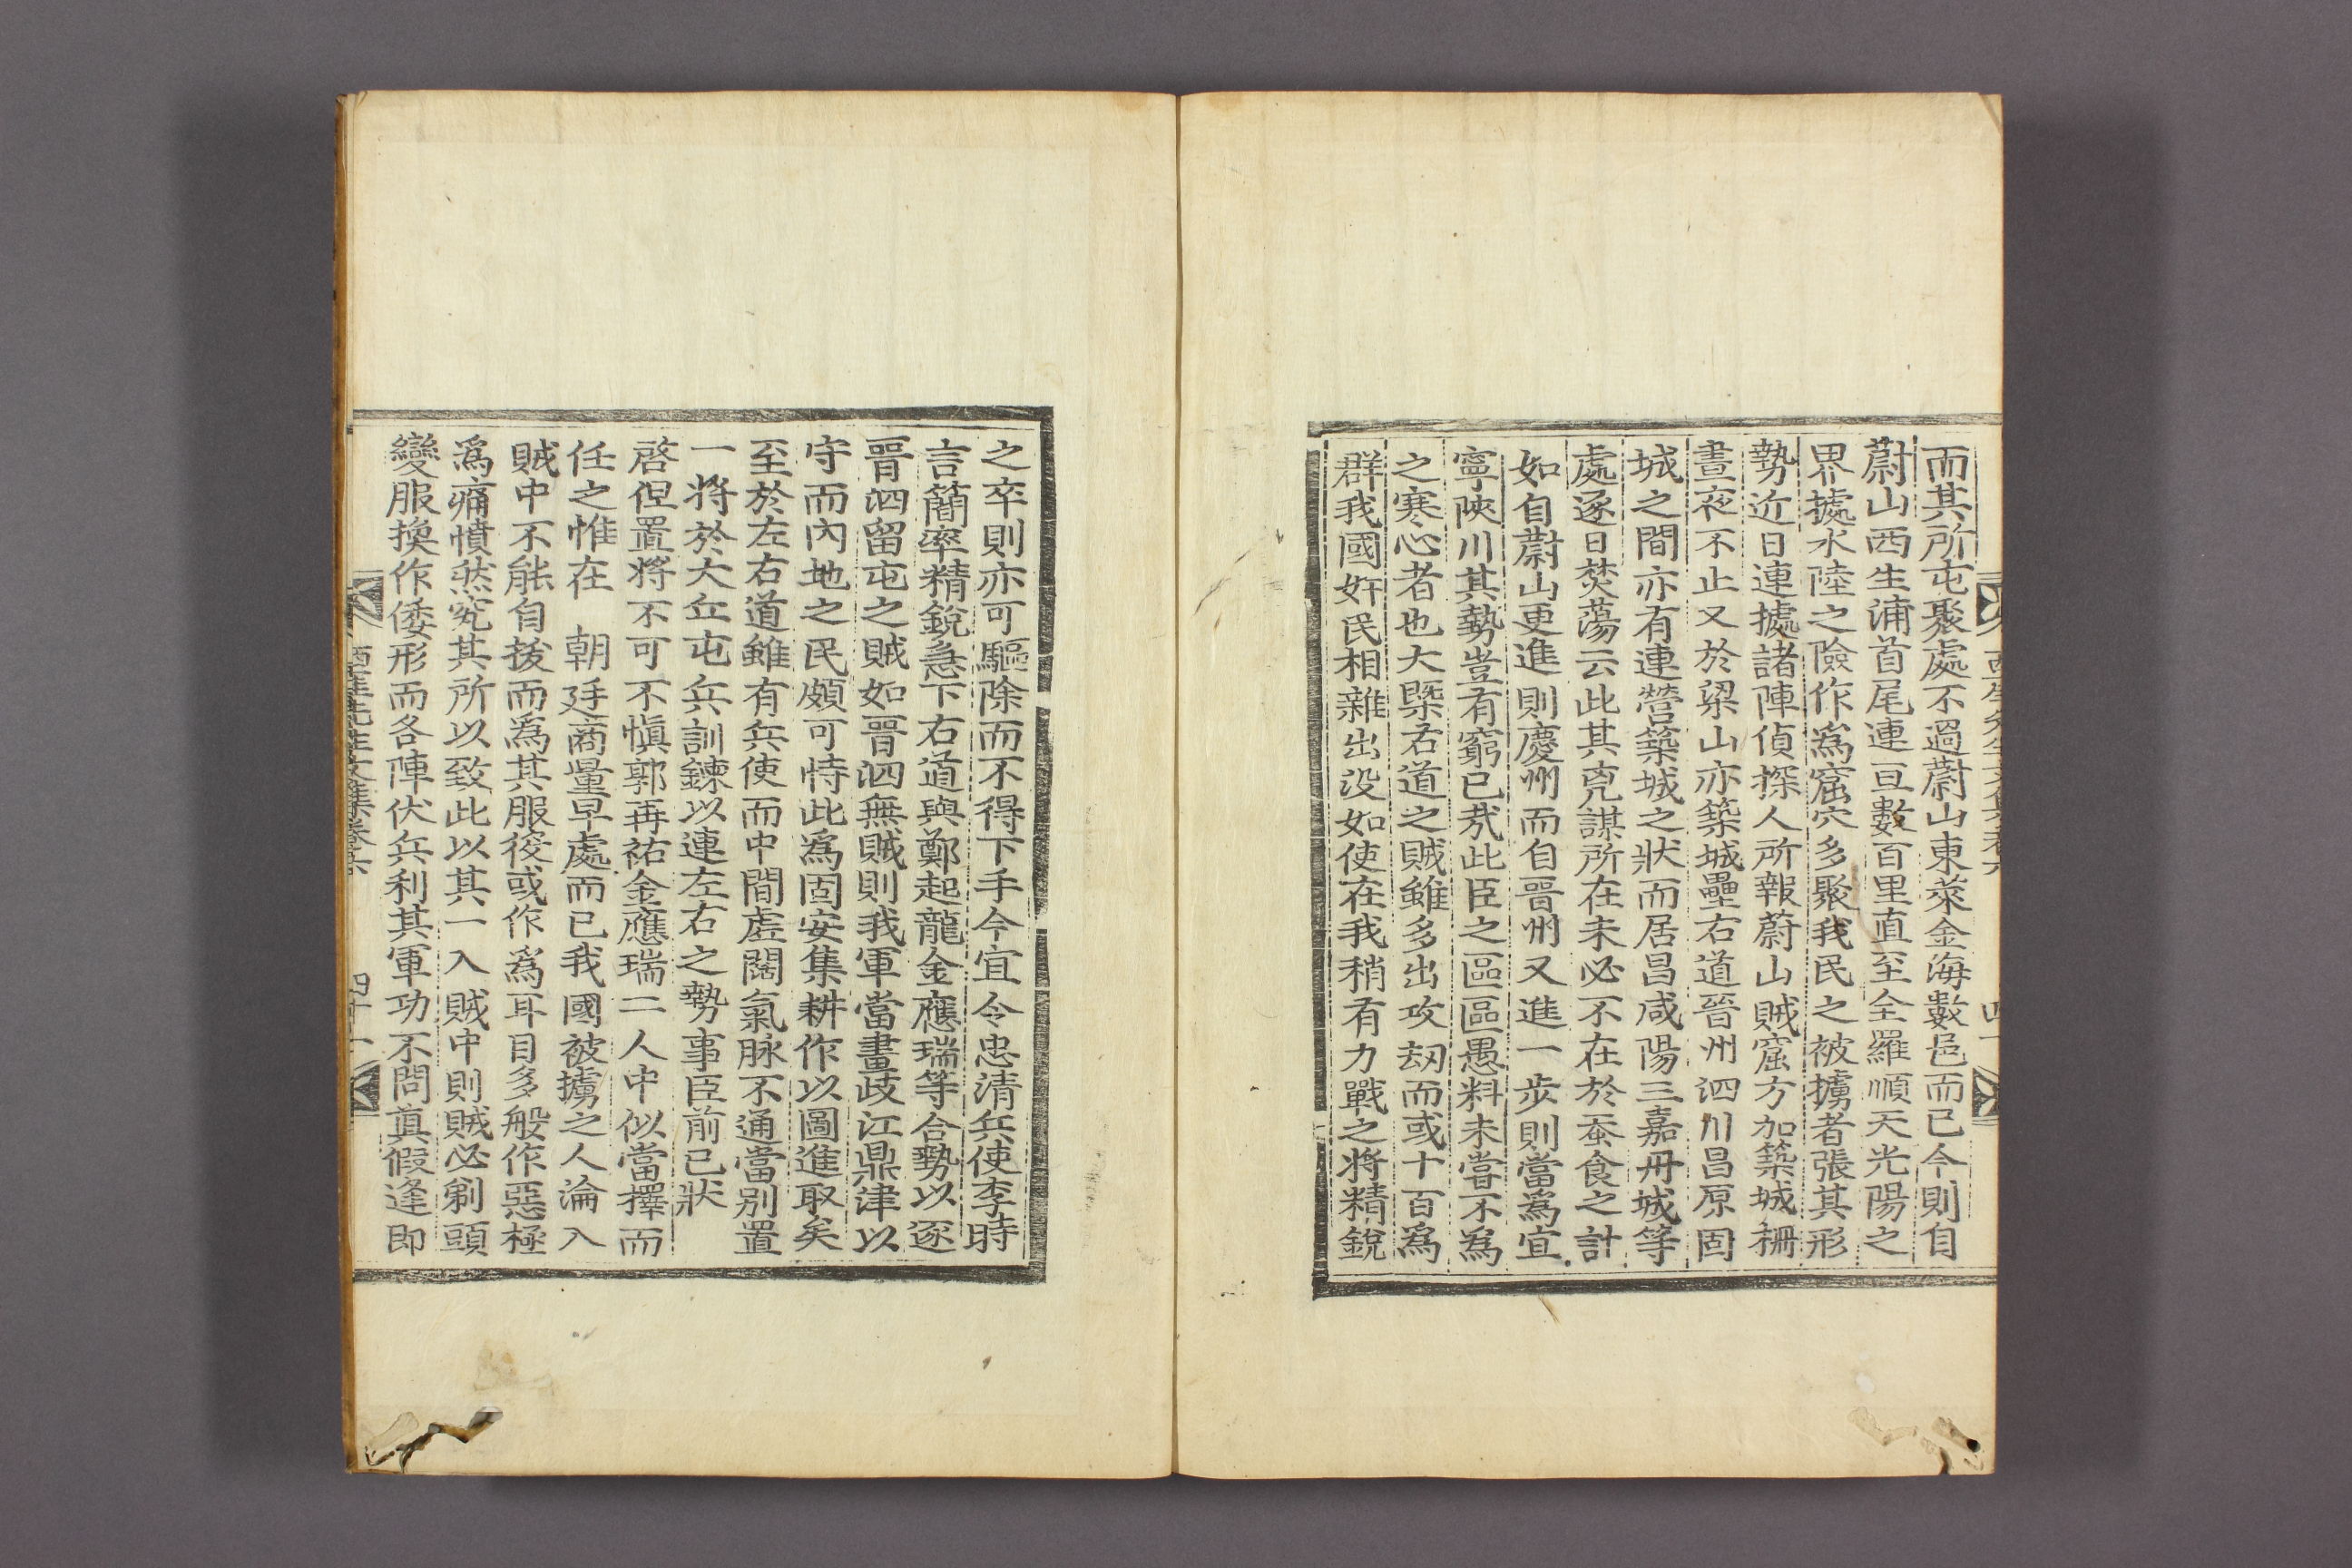 而其所屯聚處不過蔚山東萊金海數邑而已今則自
蔚山西生浦首尾連亘數百里直至全羅順天光陽之
界據水陸之險作爲窟穴多聚我民之被擄者張其形
勢近日連據諸陣偵探人所報蔚山賊窟方加築城柵
晝夜不止又於梁山亦築城壘右道晉州泗川昌原固
城之間亦有連營築城之狀而居昌咸陽三嘉丹城等
處逐日焚蕩云此其兇謀所在未必不在於蚕食之計
如自蔚山更進則慶州而自晉州又進一步則當爲宜
寧陜川其勢豈有窮已㢤此臣之區區愚料未甞不爲
之寒心者也大槩右道之賊雖多出攻刼而或十百爲
群我國奸民相雜出没如使在我稍有力戰之將精銳
西厓先生文集卷六
四十一
之卒則亦可驅除而不得下手今宜令忠清兵使李時
言簡率精銳急下右道與鄭起龍金應瑞等合勢以逐
晉泗留屯之賊如晉泗無賊則我軍當畫歧江鼎津以
守而內地之民頗可恃此爲固安集耕作以圖進取矣
至於左右道雖有兵使而中間虛闊氣脉不通當別置
一將於大丘屯兵訓鍊以連左右之勢事臣前已狀
啓但置將不可不愼郭再祐金應瑞二人中似當擇而
任之惟在 朝廷商量早處而已我國被擄之人淪入
賊中不能自拔而爲其服役或作爲耳目多般作惡極
爲痛憤然究其所以致此以其一入賊中則賊必剃頭
變服換作倭形而各陣伏兵利其軍功不問眞假逢即
西厓先生文集卷六
四十一